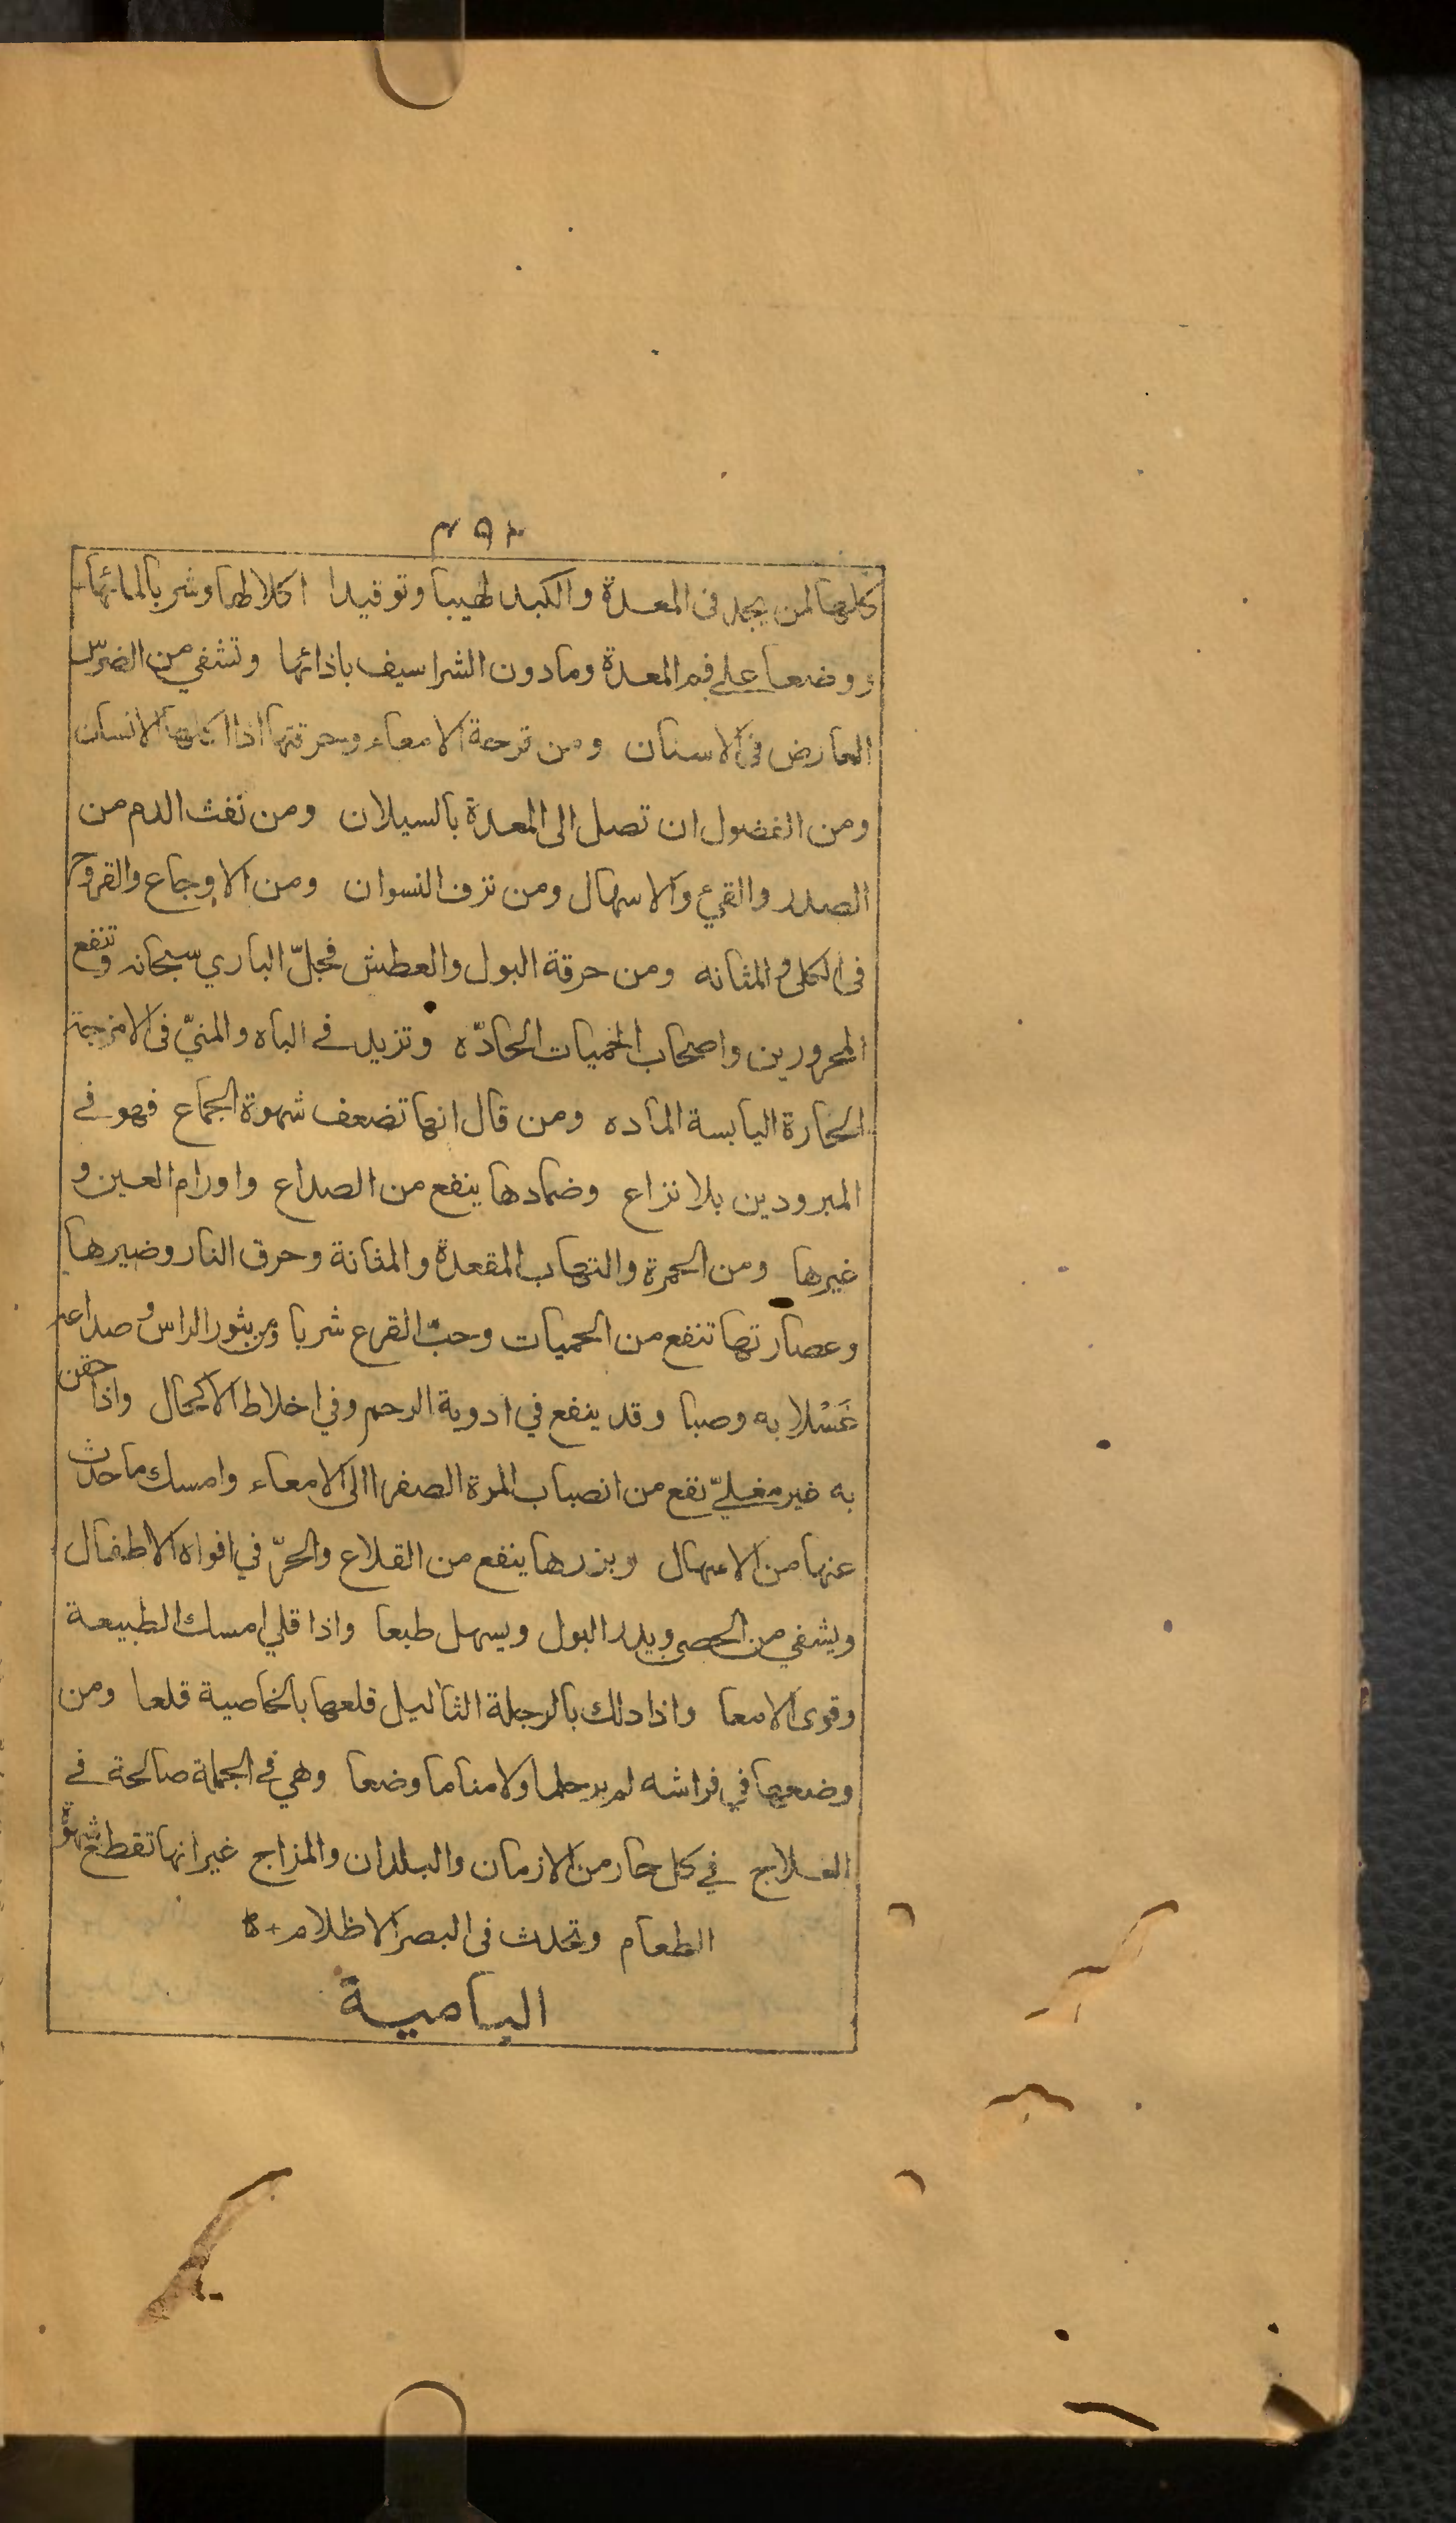 كلها لمن يجد فى المعدة والكبد لهيبا وتوقيدا اكلا لها وشربا لمائها
ووضعا على فم المعدة ومادون الشراسيف باذائها وتشفي من الضرس
العارض فى الاسنان ومن قرحة الامعاء وحرقتها اذا اكلها الانسان
ومن الفضول ان تصل الى المعدة بالسيلان ومن نفث الدم من
الصدر والقيء والاسهال ومن نزف النسوان ومن الاوجاع والقروح
فى الكلى والمثانه ومن حرقة البول والعطش فجلّ الباري سبحانه وتنفع
المحرورين واصحاب الحميات الحادّه وتزيد في الباه والمنيّ فى الامزجة
الحارة اليابسة الماده ومن قال انها تضعف شهوة الجماع فهو في
المبرودين بلا نزاع وضمادها ينفع من الصداع واورام العين و
غيرها ومن الحمرة والتهاب المقعدة والمثانة وحرق النار وضيرها
وعصارتها تنفع من الحميات وحبّ القرع شربا ومن بثور الراس وصداعه
غَسْلا به وصبا وقد ينفع في ادوية الرحم وفي اخلاط الاكحال واذا حقن
به غير مغليّ نفع من انصباب المرة الصفرا الى الامعاء وامسك ما حدث
عنها من الاسهال وبزرها ينفع من القلاع والحرّ في افواه الاطفال
ويشفي من الحصى ويدر البول ويسهل طبعا واذا قلي امسك الطبيعة
وقوى الامعا واذا دلك بالرجلة الثآليل قلعها بالخاصية قلعا ومن
وضعها في فراشه لم ير حلما ولا مناما وضعا وهي في الجملة صالحة في
العلاج في كل حار من الازمان والبلدان والمزاج غير انها تقطع شهوة
الطعام وتحدث فى البصر الاظلام
البامية